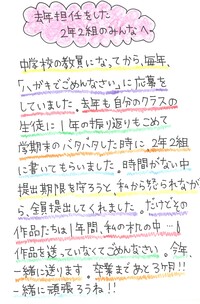 去年担任をした
2年2組のみんなへ
中学校の教員になってから、毎年、
「ハガキでごめんなさい」に応募を
していました。去年も自分のクラスの
生徒に1年の振り返りもこめて
学期末のバタバタした時に、2年2組に
書いてもらいました。時間がない中
提出期限を守ろうと、私から怒られながら、
全員提出してくれました。だけどその
作品たちは1年間、私の机の中…!
作品を送っていなくてごめんなさい。今年、
一緒に送ります。卒業まであと3ヶ月!!
一緒に頑張ろうね!!